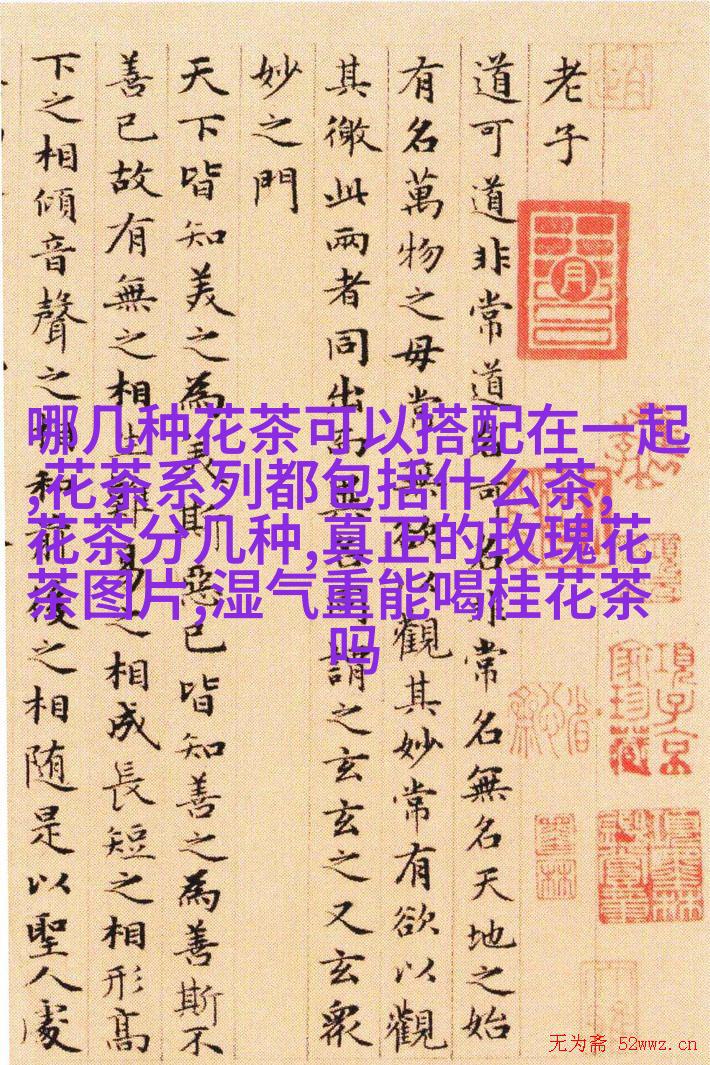 老子
道可道非常道名可名非常名無名天地之始
有名萬物之母常無欲以觀其妙常有欲以觀
其徼此兩者同出而異名同謂之玄玄之又玄衆
妙之門
天下皆知美之為美斯惡已皆知善之為善斯不
善已故有無之相生難易之相成長短之相形高
下之相傾音聲之相和前後之相随是以聖人處
哪几种花茶可以搭配在一起
,花茶系列都包括什么茶,
花茶分几种,真正的玫瑰花
茶图片,湿气重能喝桂花茶
吗
項子京
家珍藏
无为斋 52wwz.cn